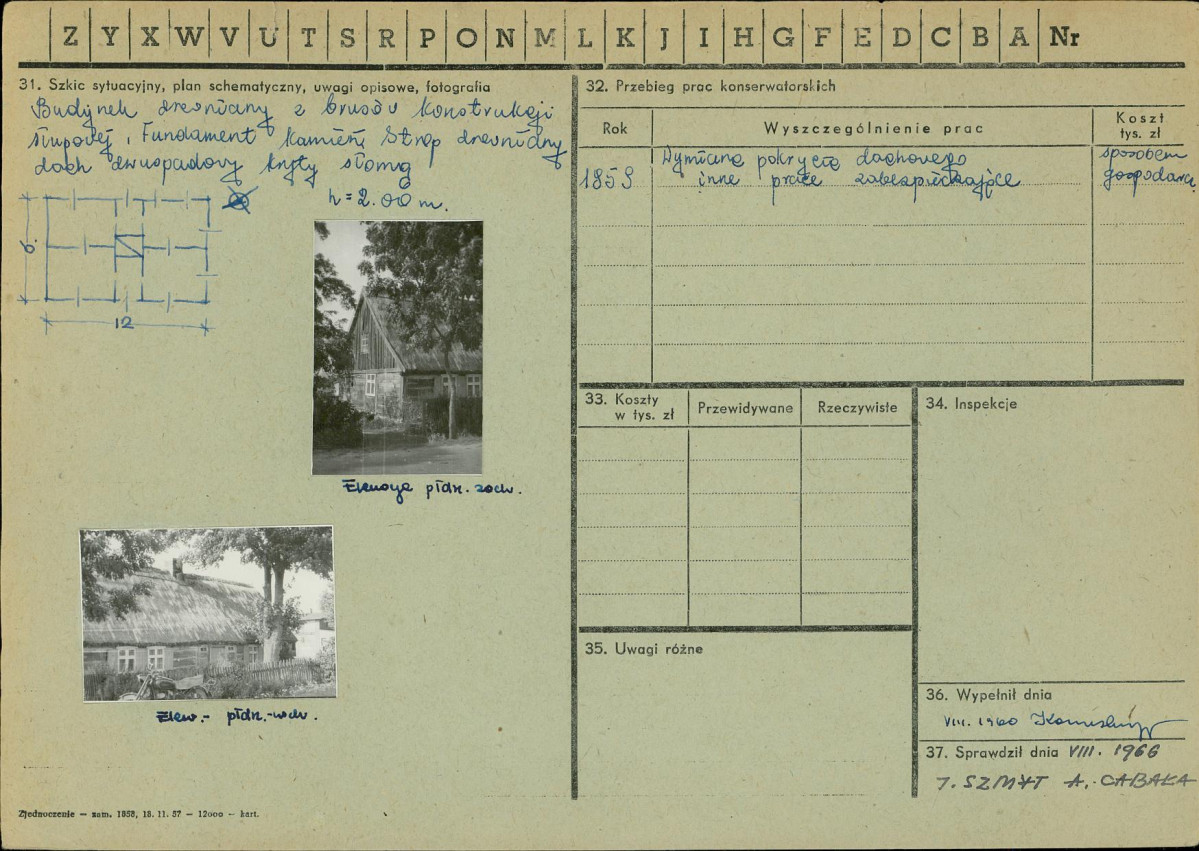 Z Y X W V U T S R P O N M L K J I H G F E D C B A Nr
31. Szkic sytuacyjny, plan schematyczny, uwagi opisowe, fotografia
Budynek drewniany z brusów konstrukcji
słupowej, Fundament kamień, Strop drewniany
dach dwuspadowy kryty słomą
h = 2.00 m.
6.
12
Elewacja płdn. zach.
Elew.- płdn.-wch.
Zjednoczenie — zam. 1858, 18. 11. 57 — 12000 — kart.
32. Przebieg prac konserwatorskich
Rok
Wyszczególnienie prac
Koszt
tys. zł
1859
Wymiana pokrycia dachowego
inne prace zabezpieczające
sposobem
gospodarcz.
33. Koszty
w tys. zł
Przewidywane
Rzeczywiste
34. Inspekcje
35. Uwagi różne
36. Wypełnił dnia
VIII. 1960
37. Sprawdził dnia VIII. 1966
SZMYT A. CABAŁA